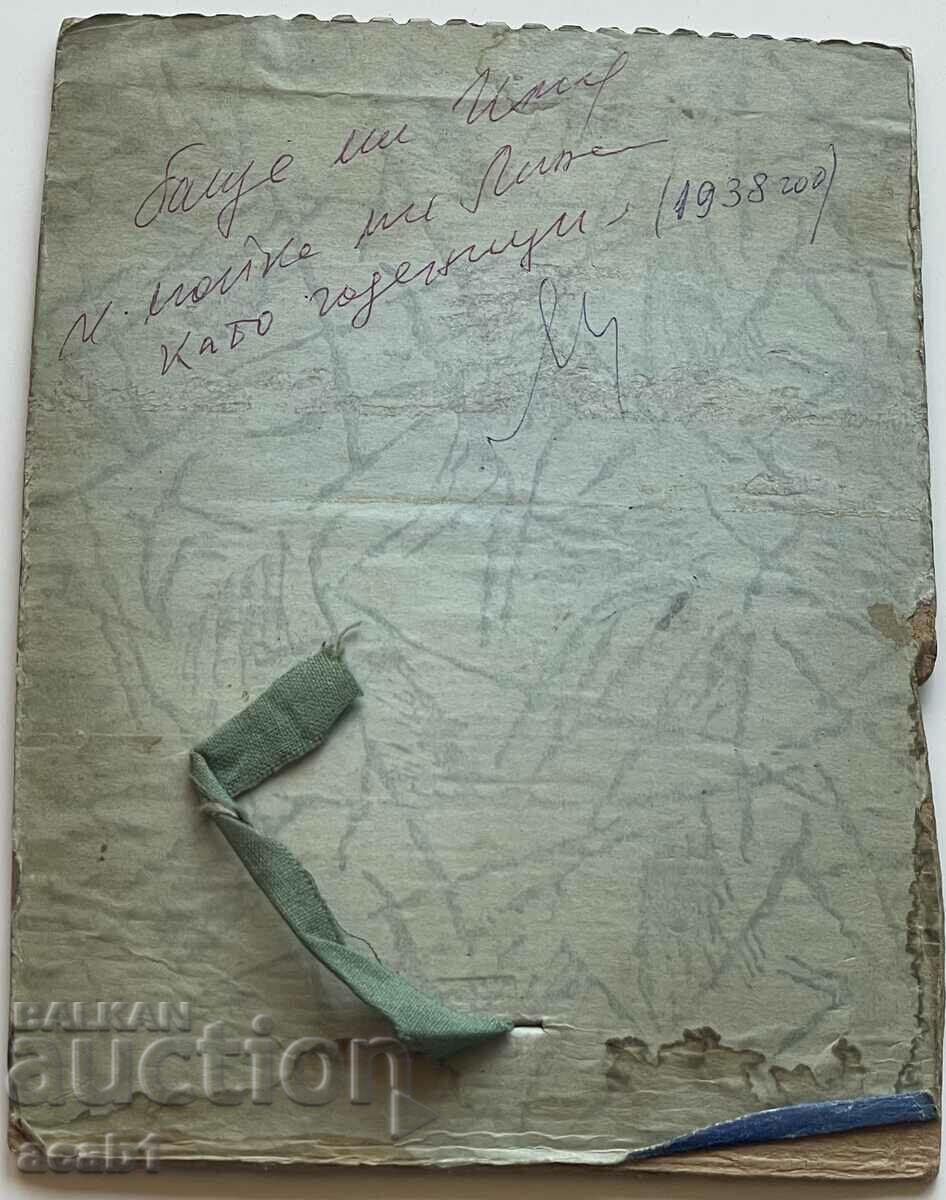 баще ми
и майка ми
като годеници - (1938 год)
BALKAN
auction
acab1